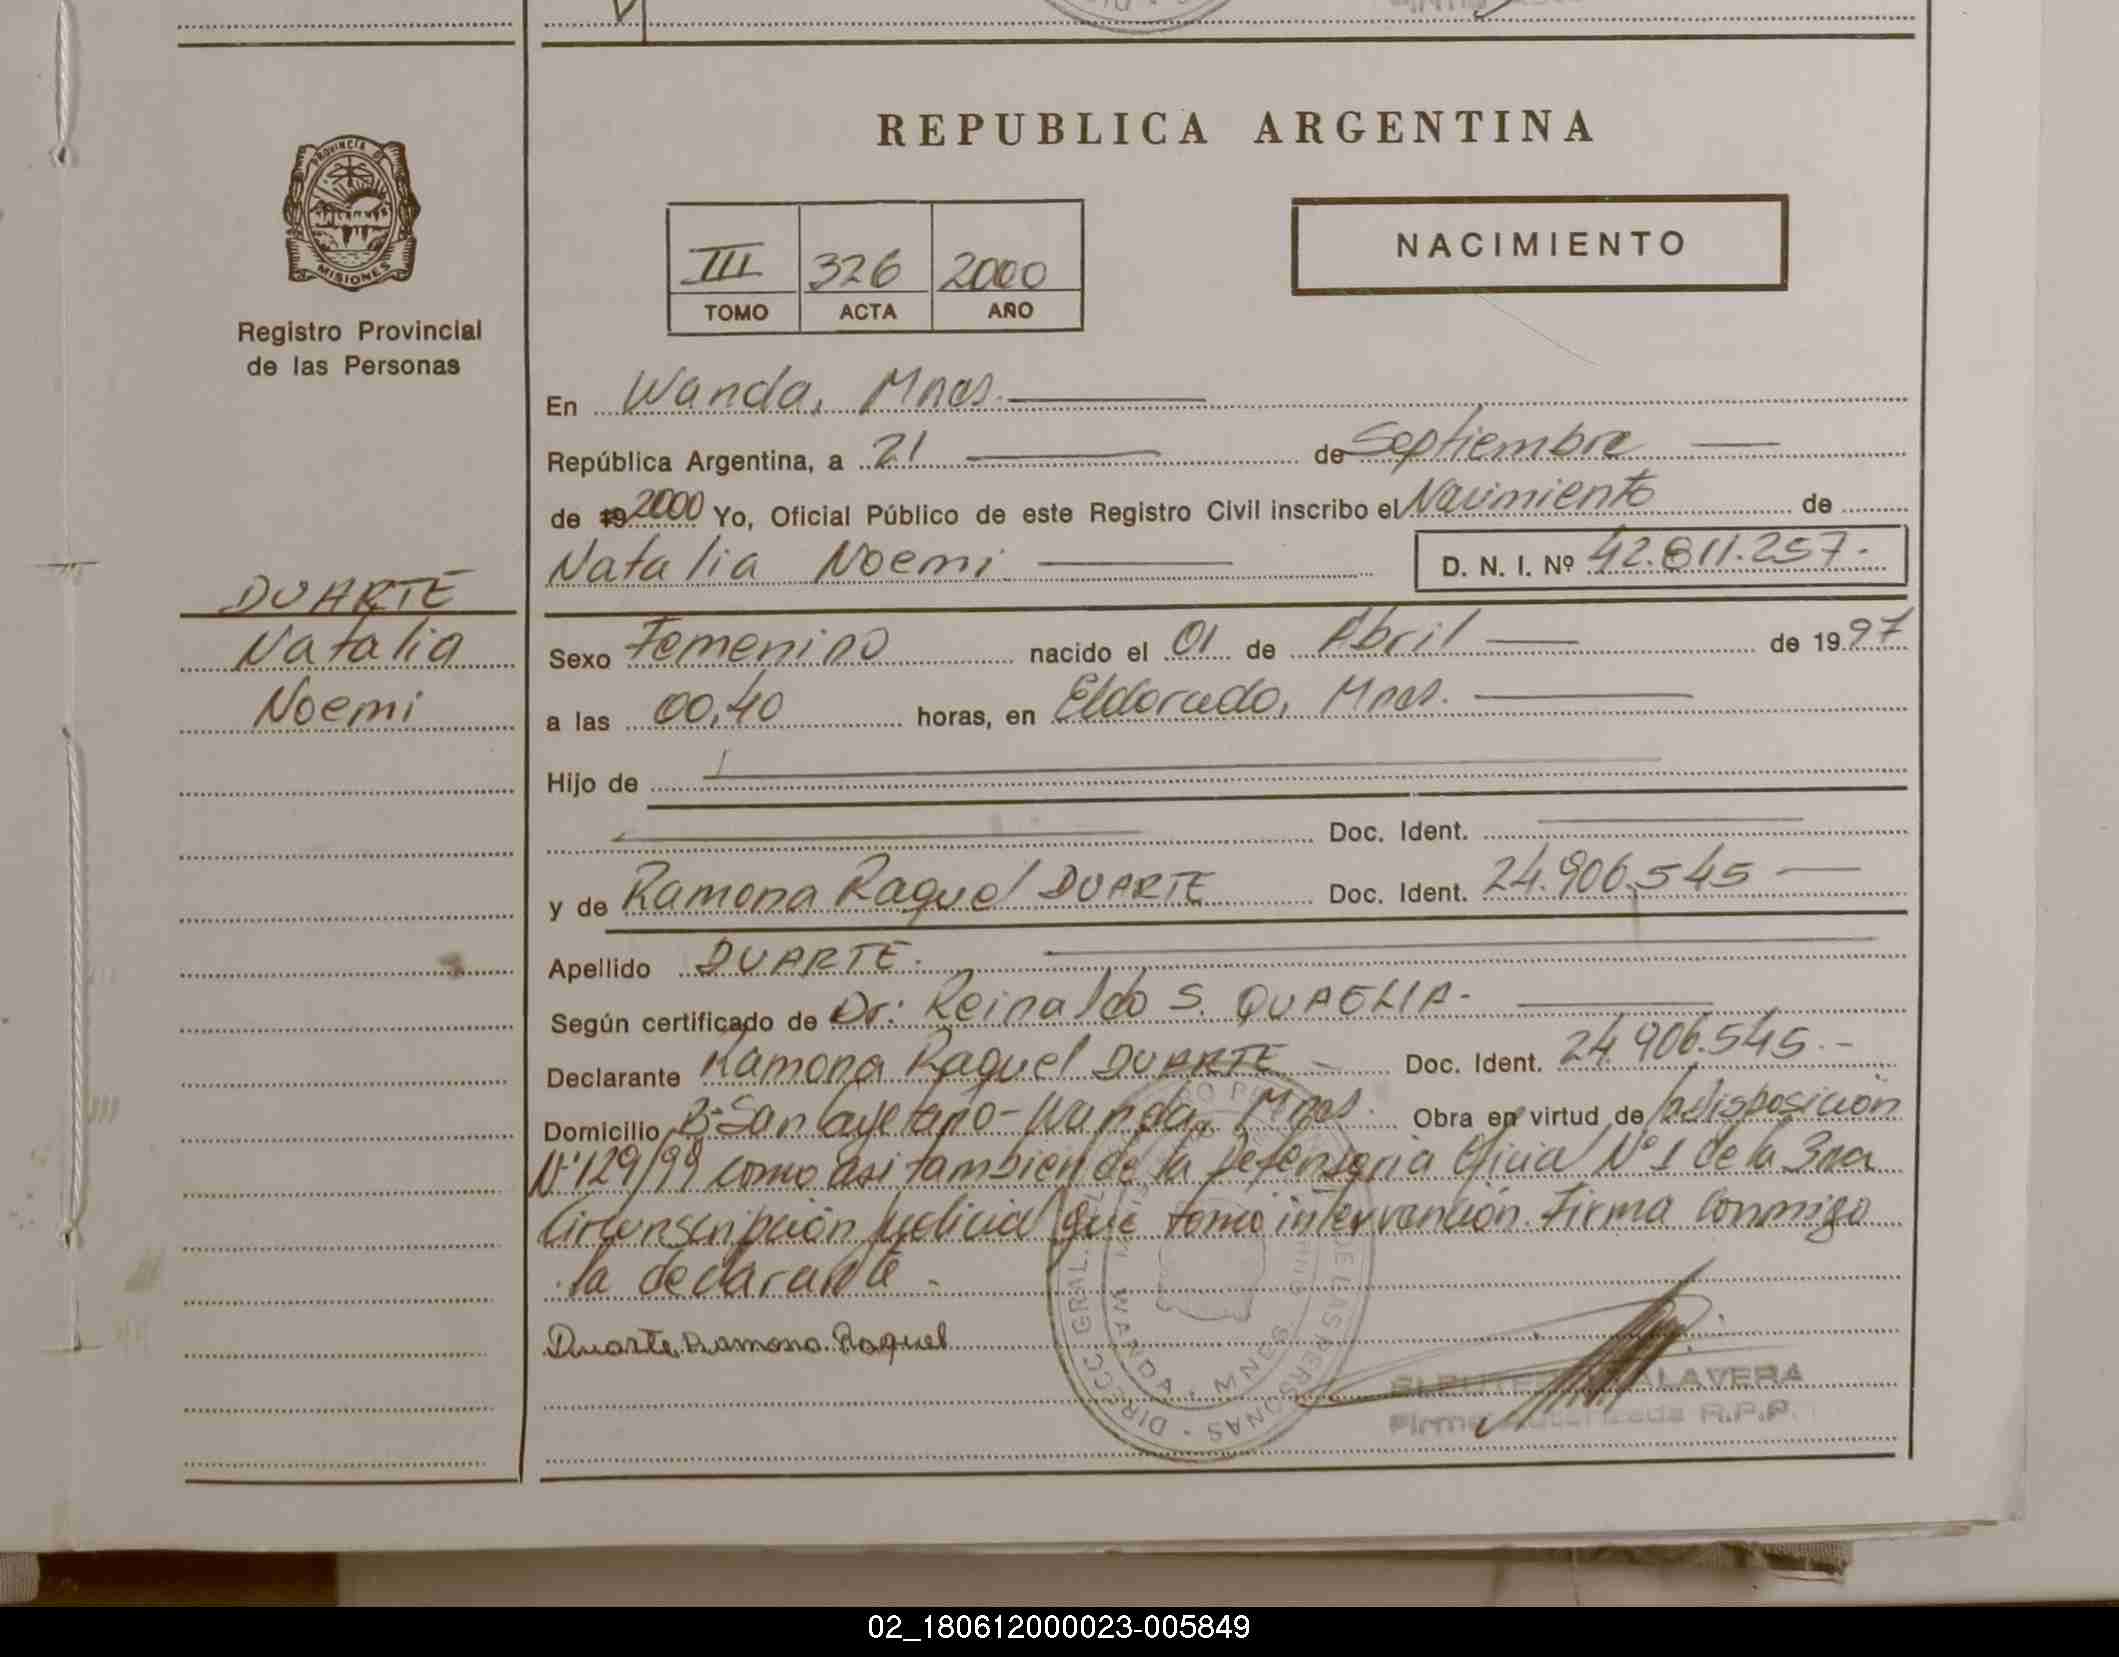 REPUBLICA ARGENTINA
PROVINCIA DE
MISIONES
Registro Provincial
de las Personas
III 326 2000
TOMO ACTA AÑO
NACIMIENTO
En Wanda, Mnes.
República Argentina, a 21 de Septiembre
de 19 2000 Yo, Oficial Público de este Registro Civil inscribo el Nacimiento de
Natalia Noemi D. N. I. Nº 42.811.257.-
DUARTE
Natalia
Noemi
Sexo Femenino nacido el 01 de Abril de 1997
a las 00,40 horas, en Eldorado, Mnes.
Hijo de
Doc. Ident.
y de Ramona Raquel DUARTE Doc. Ident. 24.906.545
Apellido DUARTE.
Según certificado de Dr: Reinaldo S. QUAGLIA-
Declarante Ramona Raquel DUARTE - Doc. Ident. 24.906.545.-
Domicilio Bº San Cayetano - Wanda, Mnes. Obra en virtud de la disposición
Nº 129/99 como asi tambien de la Defensoria Oficial Nº 1 de la 3ra
Circunscripción Judicial que tomó intervención. Firma conmigo
la declarante.
Duarte Ramona Raquel
DIRECC. GRAL. DE LAS PERSONAS
WANDA - MNES
TALAVERA
Firma Autorizada R.P.P.
02_180612000023-005849